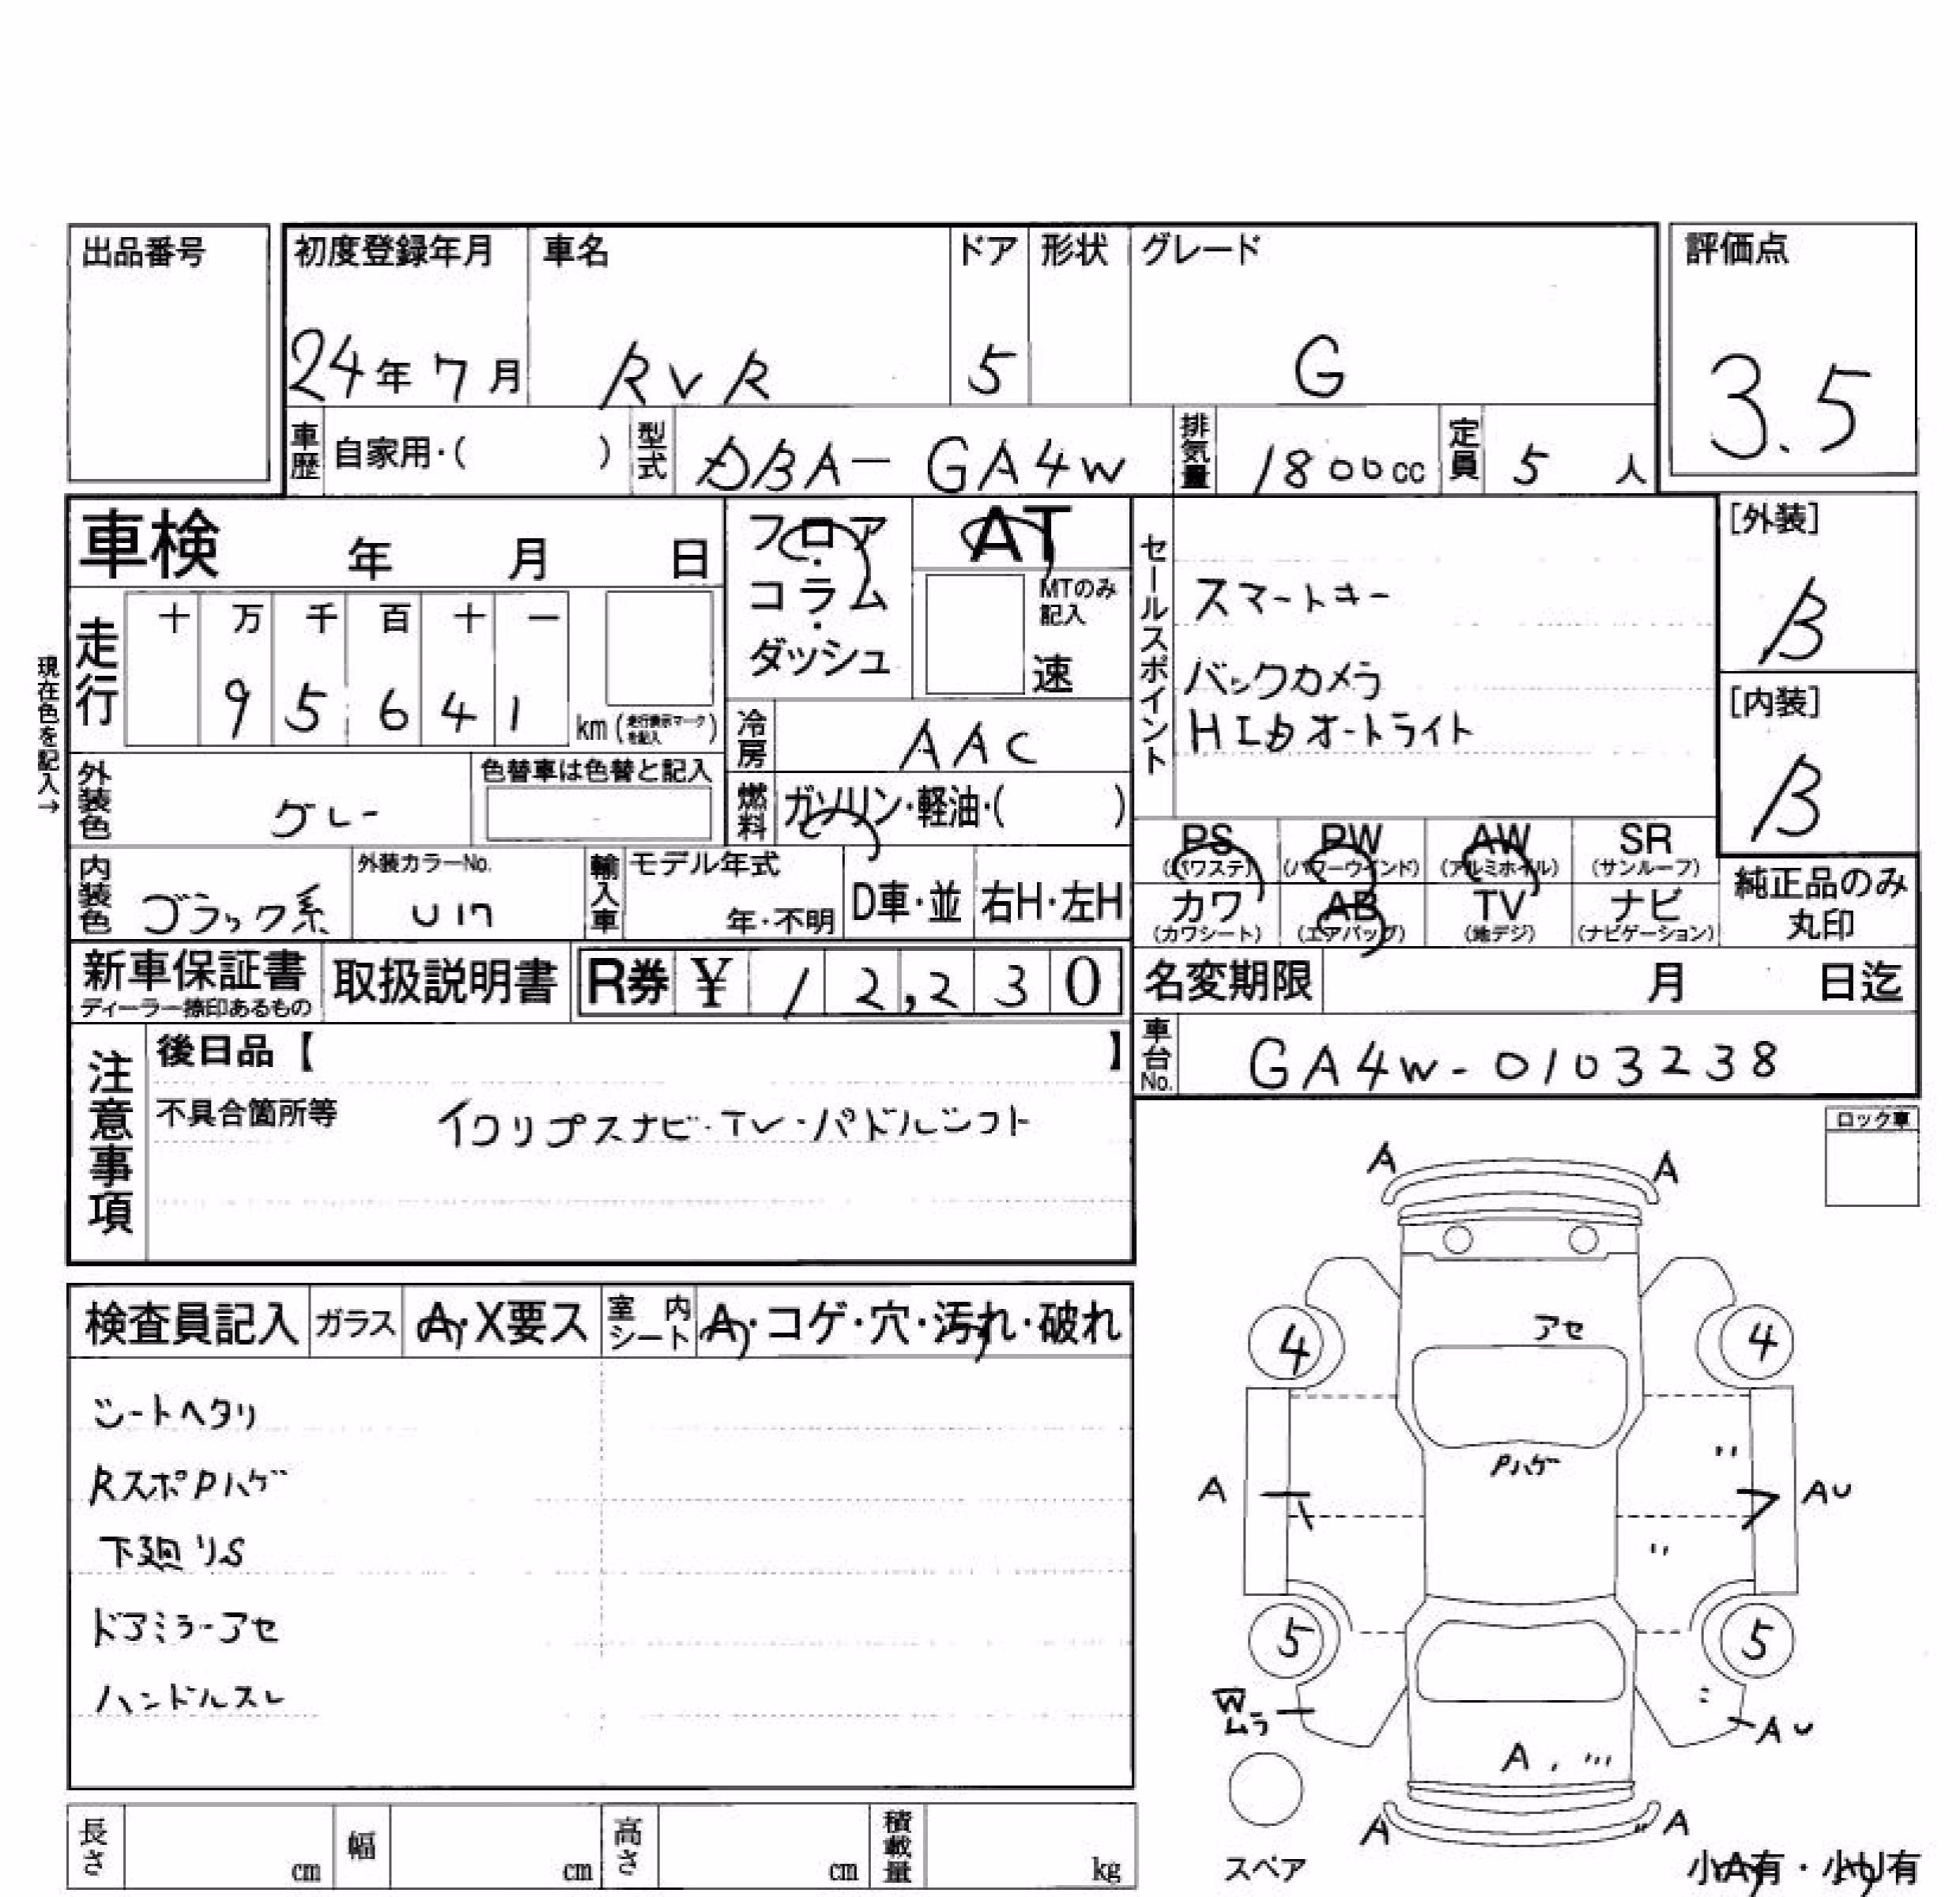 出品番号
初度登録年月 車名 ドア 形状 グレード 評価点
24年 7月 RVR 5 G 3.5
車歴 自家用・( ) 型式 DBA-GA4W 排気量 1800cc 定員 5 人
車検 年 月 日
フロア・コラム・ダッシュ
AT
MTのみ記入
速
セールスポイント
スマートキー
バックカメラ
HIDオートライト
[外装]
B
[内装]
B
現在色を記入→
走行 十 万 千 百 十 一
9 5 6 4 1 km (走行表示マークを記入)
冷房 AAC
外装色 グレー 色替車は色替と記入
燃料 ガソリン・軽油・( )
PS (パワステ) PW (パワーウインド) AW (アルミホイル) SR (サンルーフ)
カワ (カワシート) AB (エアバッグ) TV (地デジ) ナビ (ナビゲーション)
純正品のみ丸印
内装色 ブラック系 外装カラーNo. U17 輸入車 モデル年式 年・不明 D車・並 右H・左H
新車保証書 ディーラー捺印あるもの 取扱説明書 R券 ¥ 12,230
名変期限 月 日迄
車台No. GA4W-0103238
注意事項
後日品【 】
不具合箇所等 イクリプスナビ・TV・パドルシフト
ロック車
検査員記入 ガラス A・X要ス 室内シート A・コゲ・穴・汚れ・破れ
シートヘタリ
RスポPハゲ
下廻リS
ドアミラーアセ
ハンドルスレ
A A
アセ
4 4
Pハゲ
〃
A AU
〃
5 5
W
ムラ
〃
AU
A , 〃
A 〃A
スペア
小A有・小U有
長さ cm 幅 cm 高さ cm 積載量 kg